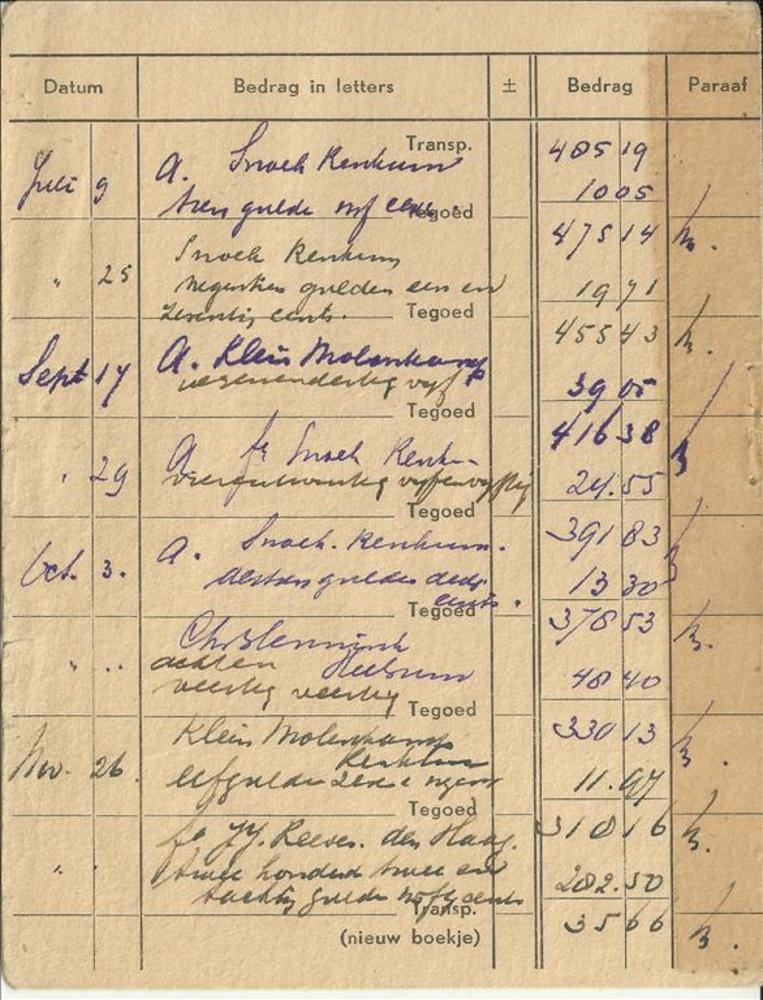 Datum Bedrag in letters ± Bedrag Paraaf
Transp. 485 19
Juli 9 A. Snoek Renkum
tien gulde vijf cent. 10 05
Tegoed 475 14
" 25 Snoek Renkum
negentien gulden een en 19 71
zeventig cents.
Tegoed 455 43
Sept 17 A. Klein Molenkamp
39 05
Tegoed 416 38
" 29 A. fa Snoek Renk.
vierentwintig vyfenvyftig 24.55
Tegoed 391 83
Oct. 3. A. Snoek. Renkum.
dertien gulden 13 30
cents.
Tegoed 378 53
" "
veertig veertig 48 40
Tegoed 330 13
Nov. 26. Klein Molenkamp
Renkum
elf gulden 11.97
Tegoed 318 16
" fa J.J. Reeser. den Haag.
twee honderd twee en 282.50
tachtig gulden vyftig cents
Transp. 35 66
(nieuw boekje)